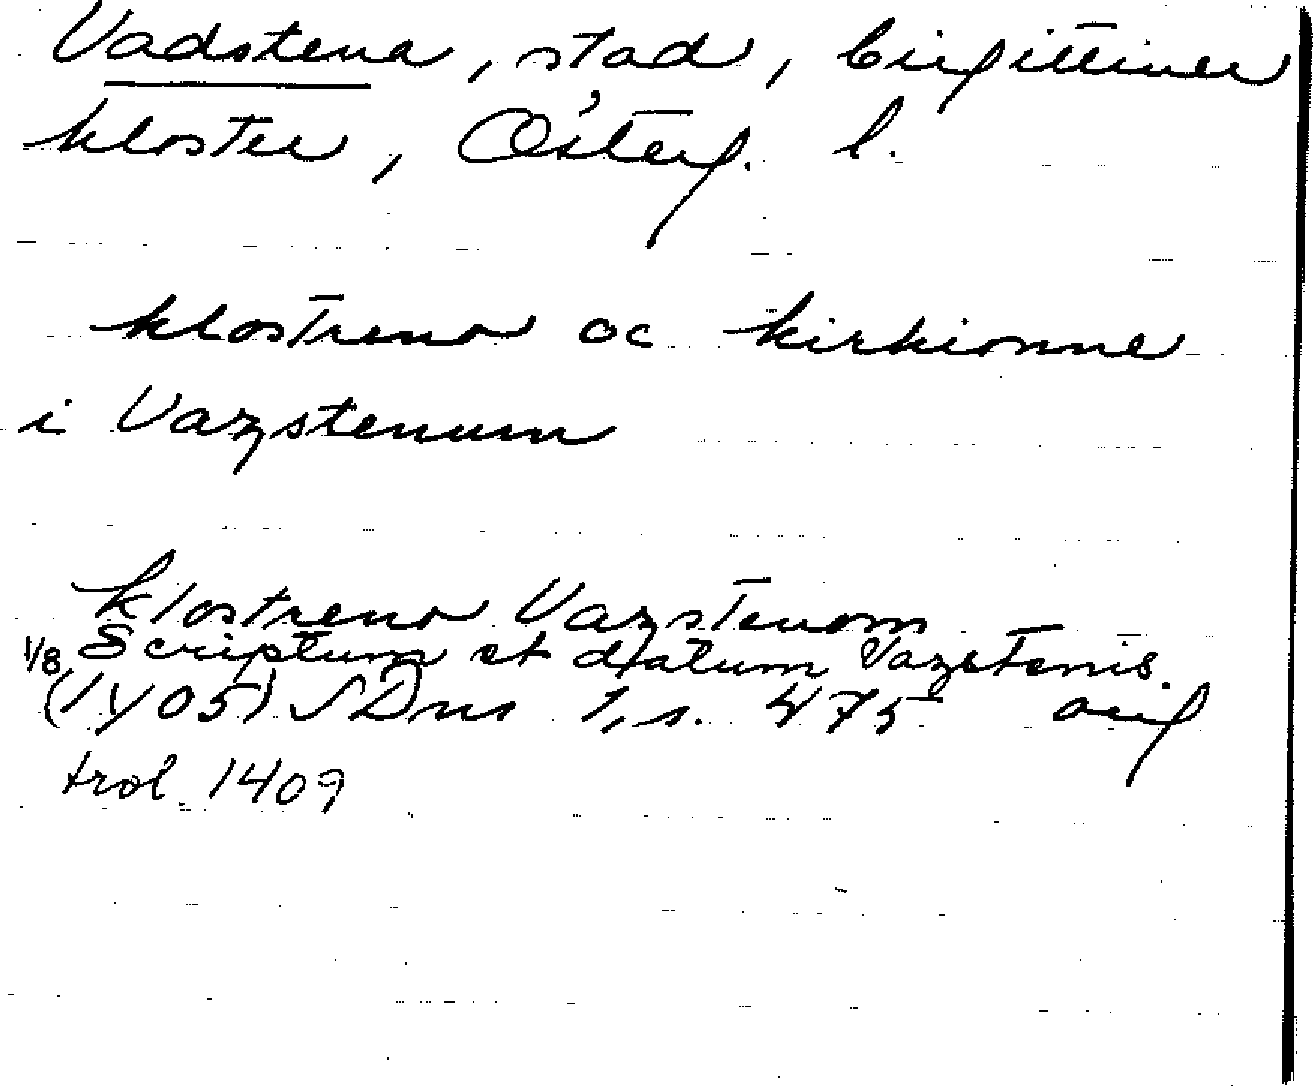 Vadstena, stad, birgittiner
kloster, Österg. l.
klostreno oc kirkionne
i Vazstenum
klostreno Vazstenom
Scriptum et datum Vazstenis.
1/8 (1405) SDns 1, s. 475 orig
trol. 1409